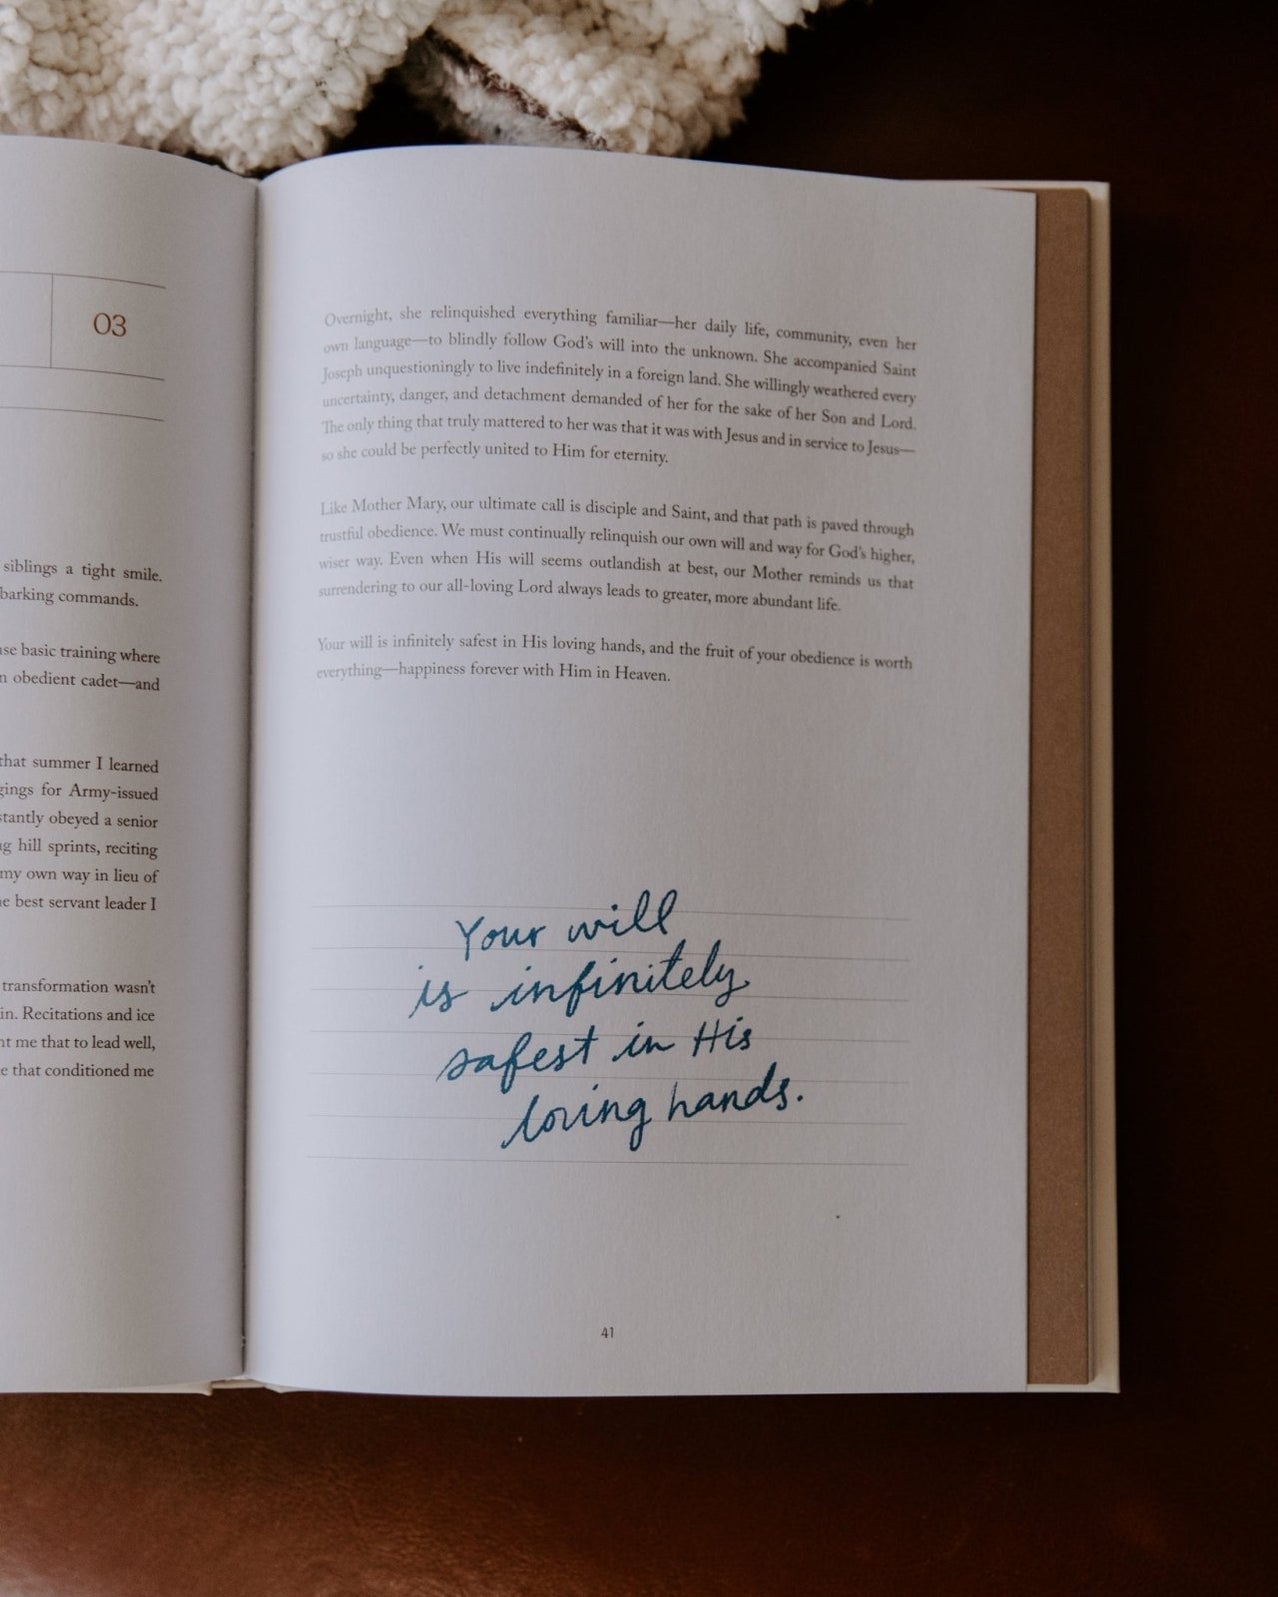 03
siblings a tight smile.
barking commands.
se basic training where
n obedient cadet—and
that summer I learned
gings for Army-issued
stantly obeyed a senior
g hill sprints, reciting
my own way in lieu of
e best servant leader I
transformation wasn't
in. Recitations and ice
nt me that to lead well,
e that conditioned me
Overnight, she relinquished everything familiar—her daily life, community, even her
own language—to blindly follow God's will into the unknown. She accompanied Saint
Joseph unquestioningly to live indefinitely in a foreign land. She willingly weathered every
uncertainty, danger, and detachment demanded of her for the sake of her Son and Lord.
The only thing that truly mattered to her was that it was with Jesus and in service to Jesus—
so she could be perfectly united to Him for eternity.
Like Mother Mary, our ultimate call is disciple and Saint, and that path is paved through
trustful obedience. We must continually relinquish our own will and way for God's higher,
wiser way. Even when His will seems outlandish at best, our Mother reminds us that
surrendering to our all-loving Lord always leads to greater, more abundant life.
Your will is infinitely safest in His loving hands, and the fruit of your obedience is worth
everything—happiness forever with Him in Heaven.
Your will
is infinitely
safest in His
loving hands.
41